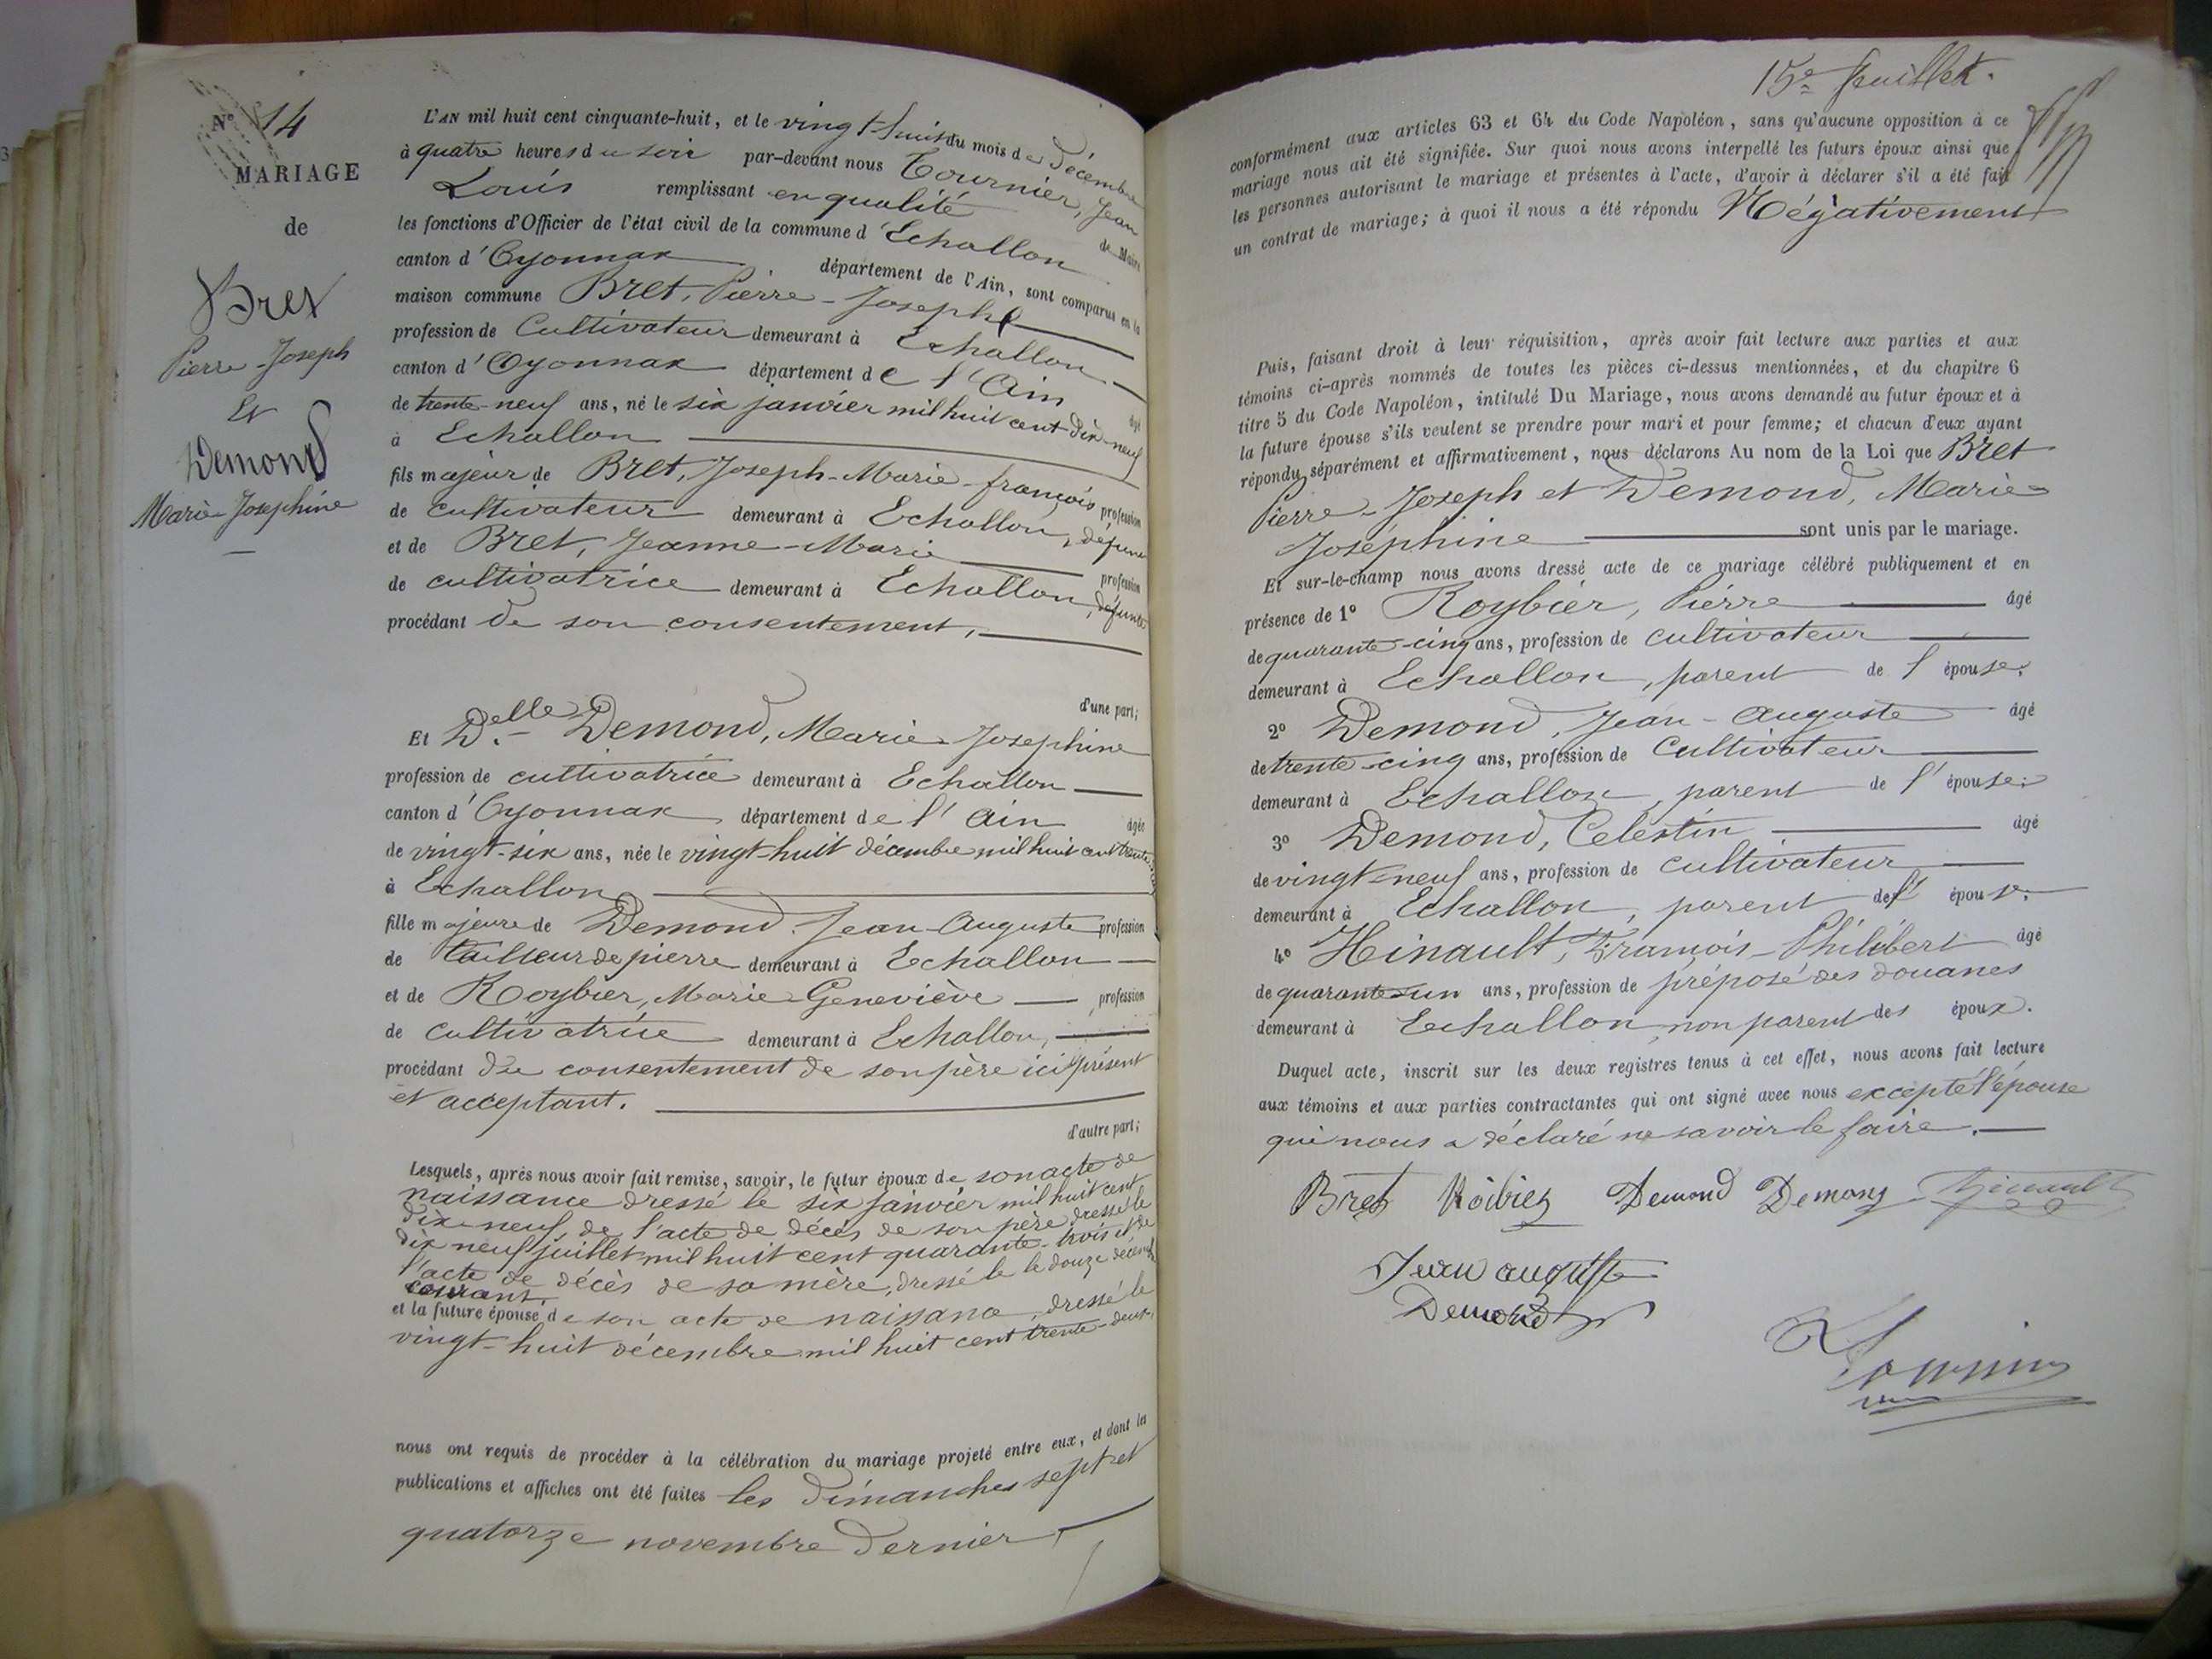 N° 14
MARIAGE
de
Bret
Pierre-Joseph
Et
Demond
Marie-Josephine
L'AN mil huit cent cinquante-huit, et le vingt-huit du mois de Décembre
à quatre heures du soir par-devant nous Tournier, Jean
Louis remplissant en qualité de Maire
les fonctions d'Officier de l'état civil de la commune d'Echallon
canton d'Oyonnax département de l'Ain, sont comparus en la
maison commune Bret, Pierre-Joseph
profession de Cultivateur demeurant à Echallon
canton d'Oyonnax département de l'Ain âgé
de trente-neuf ans, né le six janvier mil huit cent dix-neuf
à Echallon
fils majeur de Bret, Joseph-Marie-françois profession
de cultivateur demeurant à Echallon, défunt
et de Bret, Jeanne-Marie profession
de cultivatrice demeurant à Echallon, défunte
procédant de son consentement,
d'une part;
Et Delle Demond, Marie Josephine
profession de cultivatrice demeurant à Echallon
canton d'Oyonnax département de l'Ain âgée
de vingt-six ans, née le vingt-huit décembre mil huit cent trente-deux
à Echallon
fille majeure de Demond, Jean-Auguste profession
de tailleur de pierre demeurant à Echallon
et de Roybier, Marie-Geneviève profession
de cultivatrice demeurant à Echallon,
procédant du consentement de son père ici présent
et acceptant.
d'autre part;
Lesquels, après nous avoir fait remise, savoir, le futur époux de son acte de
naissance dressé le six janvier mil huit cent
dix-neuf, de l'acte de décès de son père dressé le
dix neuf juillet mil huit cent quarante-trois et de
l'acte de décès de sa mère, dressé le le douze décembre
courant,
et la future épouse de son acte de naissance, dressé le
vingt-huit décembre mil huit cent trente-deux,
nous ont requis de procéder à la célébration du mariage projeté entre eux, et dont les
publications et affiches ont été faites les dimanches sept et
quatorze novembre dernier
15e feuillet.
conformément aux articles 63 et 64 du Code Napoléon, sans qu'aucune opposition à ce
mariage nous ait été signifiée. Sur quoi nous avons interpellé les futurs époux ainsi que
les personnes autorisant le mariage et présentes à l'acte, d'avoir à déclarer s'il a été fait
un contrat de mariage; à quoi il nous a été répondu Négativement
Puis, faisant droit à leur réquisition, après avoir fait lecture aux parties et aux
témoins ci-après nommés de toutes les pièces ci-dessus mentionnées, et du chapitre 6
titre 5 du Code Napoléon, intitulé Du Mariage, nous avons demandé au futur époux et à
la future épouse s'ils veulent se prendre pour mari et pour femme; et chacun d'eux ayant
répondu séparément et affirmativement, nous déclarons Au nom de la Loi que Bret
Pierre-Joseph et Demond, Marie
Joséphine sont unis par le mariage.
Et sur-le-champ nous avons dressé acte de ce mariage célébré publiquement et en
présence de 1° Roybier, Pierre âgé
de quarante-cinq ans, profession de cultivateur
demeurant à Echallon, parent de l'épouse.
2° Demond, Jean-Auguste âgé
de trente-cinq ans, profession de Cultivateur
demeurant à Echallon, parent de l'épouse.
3° Demond, Célestin âgé
de vingt-neuf ans, profession de cultivateur
demeurant à Echallon, parent de l'épouse.
4° Hinault, François-Philibert âgé
de quarante-un ans, profession de préposé des douanes
demeurant à Echallon, non parent des époux.
Duquel acte, inscrit sur les deux registres tenus à cet effet, nous avons fait lecture
aux témoins et aux parties contractantes qui ont signé avec nous excepté l'épouse
qui nous a déclaré ne savoir le faire.
Bret Roibier Demond Demond Hinault
Jean auguste
Demond